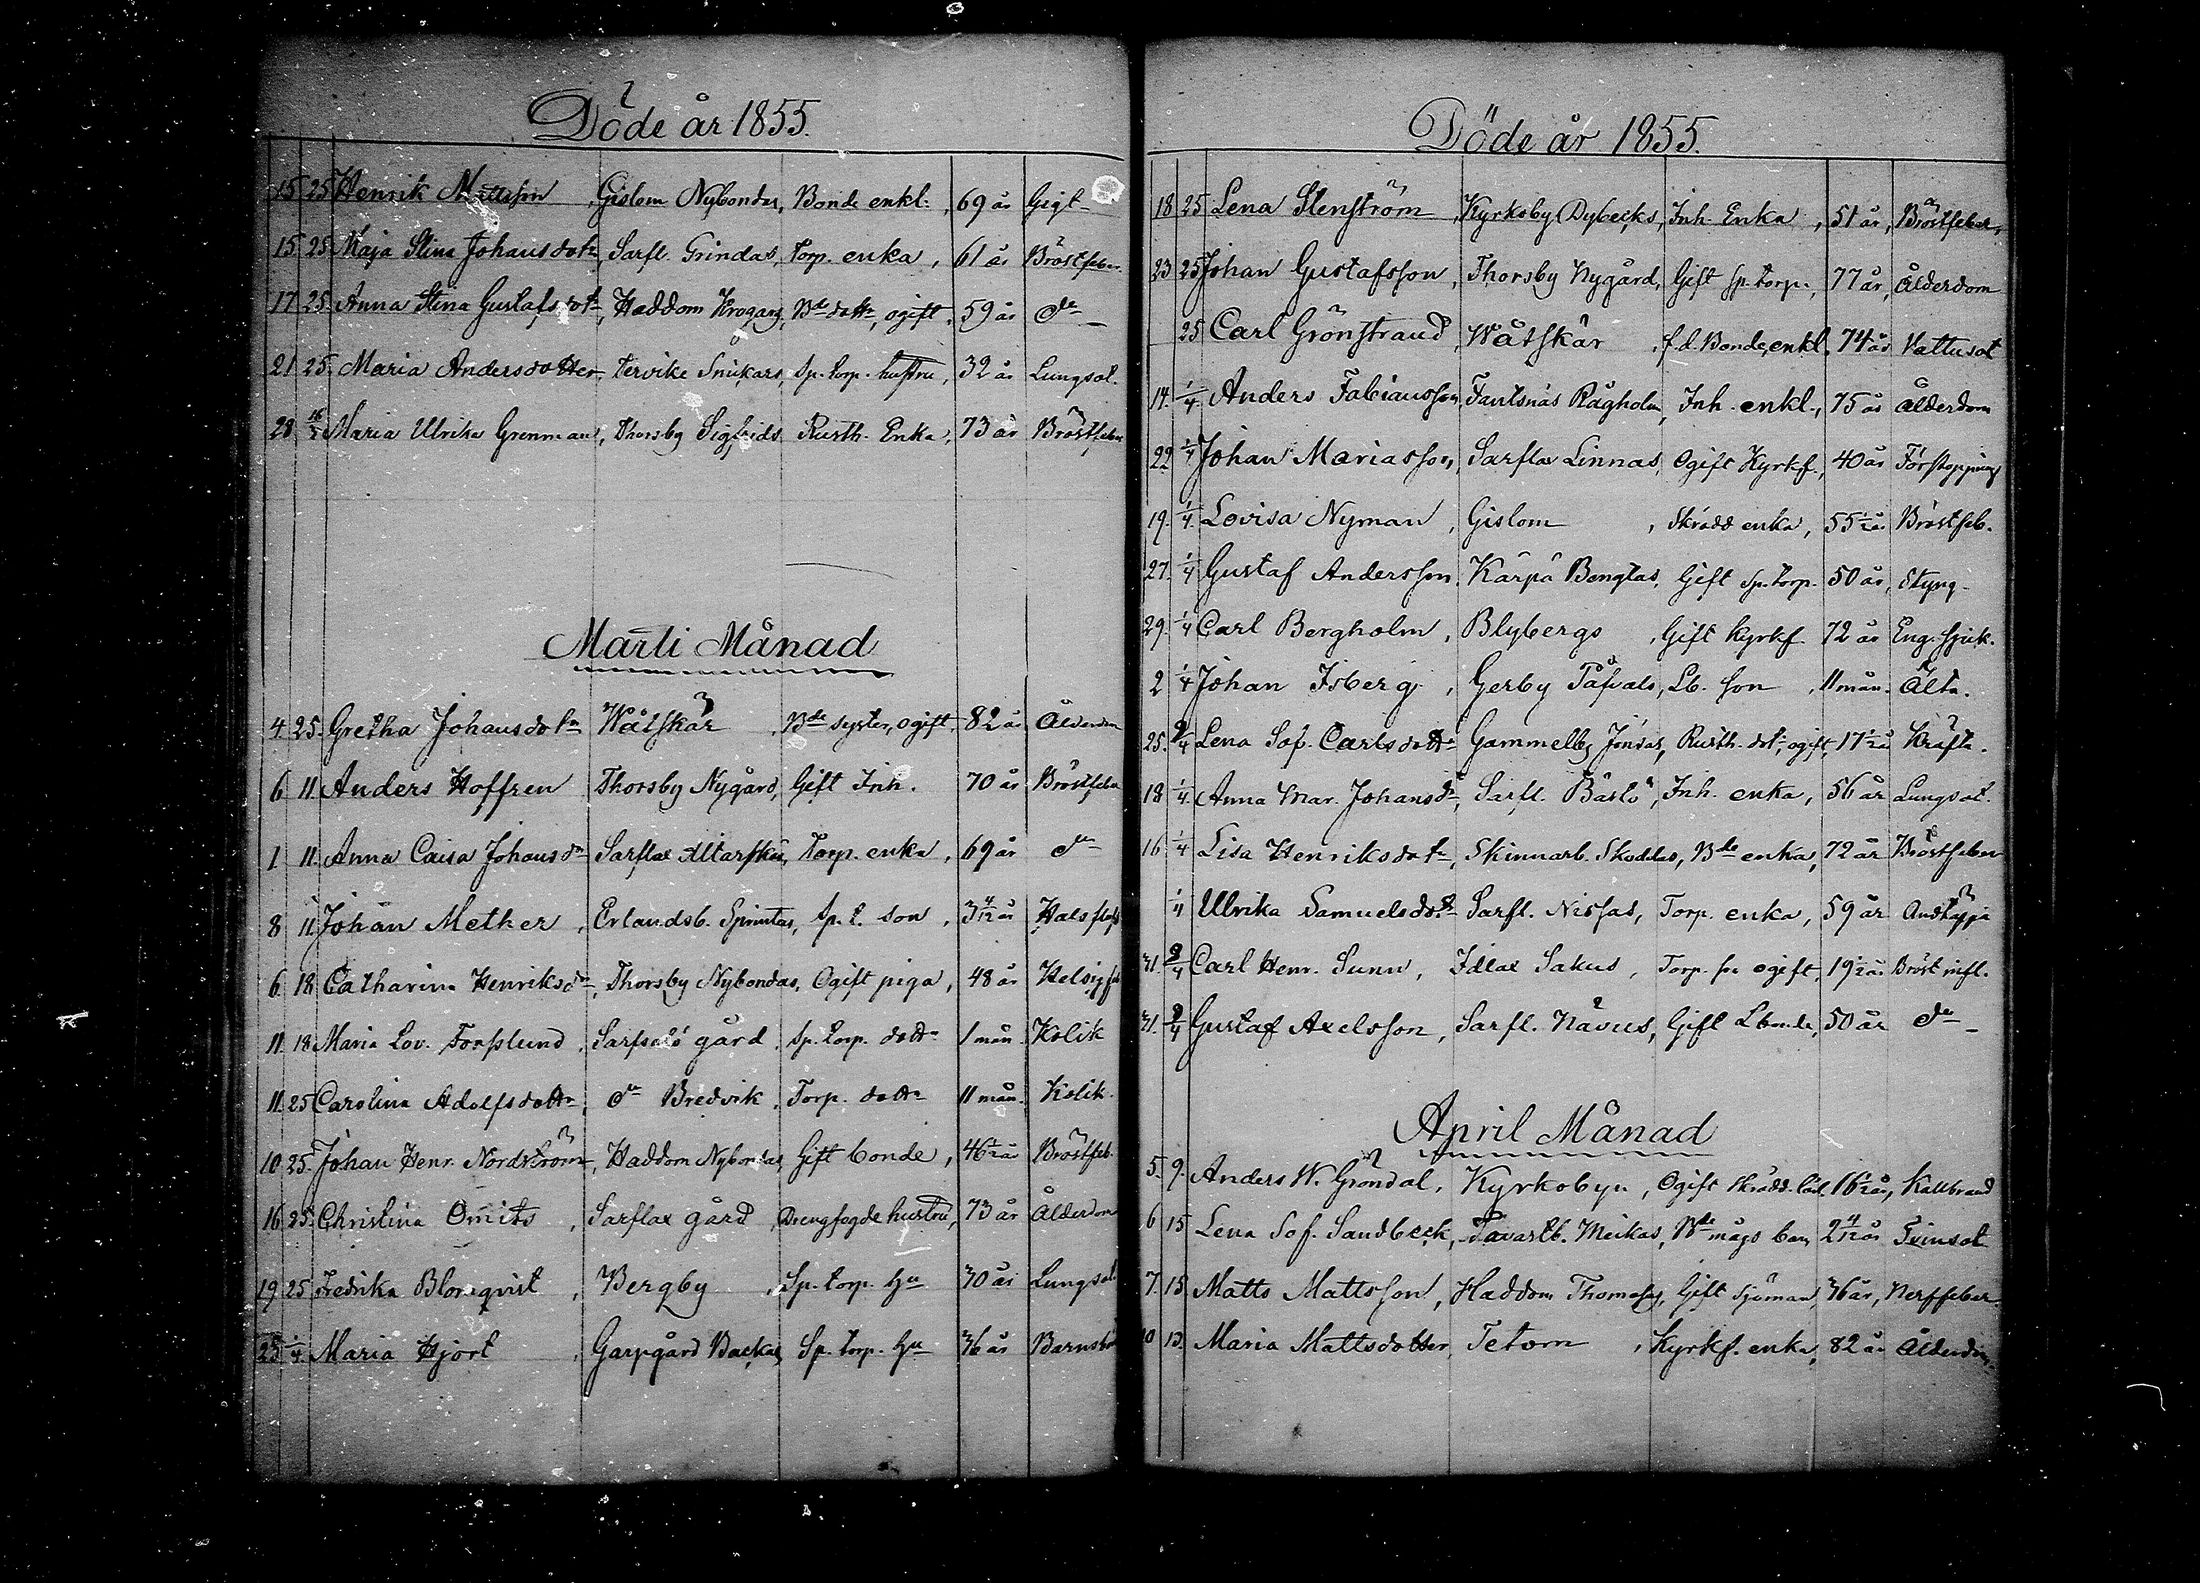 Döde år 1855.
15. 25. Henrik Mattsson, Gislom Nybondas, Bonde enkl., 69 år Gigt
15. 25. Maja Stina Johansdotr, Sarfl. Grindas, torp. enka, 61 år Bröstfeber
17 25. Anna Stina Gustafsdotr, Haddom Krogars, Bde dottr, ogift, 59 år do
21 25. Maria Andersdotter, Tervike Snickars, Sp. torp. hustru, 32 år Lungsot.
28. 16/3 Maria Ulrika Grenman, Thorsby Sigfrids, Rusth. Enka, 73 år Bröstfeber
Martii Månad
4. 25. Gretha Johansdotr Wåtskär, Bde syster, ogift, 82 år Ålderdom
6 11 Anders Hoffren Thorsby Nygård, Gift Inh. 70 år Bröstfeber
1 11. Anna Caisa Johansdr Sarflax Altarskär, Torp. enka, 69 år do
8 11. Johan Metker, Erlandsb. Sprintas, Sp. t. son, 3 4/12 år Halsfluss
6. 18. Catharina Henriksdr, Thorsby Nybondas, Ogift piga, 48 år
11. 18 Maria Lov. Forslund, Sarfsalö gård, Sp. torp. dottr 1 mån. Kolik
11. 25 Carolina Adolfsdottr, do Bredvik, Torp. dottr 11 mån. Kolik.
10. 25. Johan Henr. Nordström, Haddom Nybondas, Gift bonde, 46 1/2 år Bröstfeb.
16. 25. Christina Omits, Sarflax gård, Drengfogde hustru, 73 år Ålderdom
19. 25 Fredrika Blomqvist, Bergby, Sp. torp. hu 30 år Lungsot
23 1/4. Maria Hjort, Garpgård Backas, Sp. torp. hu 36 år Barnsbörd
Döde år 1855.
18. 25. Lena Stenström, Kyrkoby Dybecks, Inh. Enka, 51 år, Bröstfeber,
23 25 Johan Gustafsson, Thorsby Nygård, Gift sp. torp., 77 år, Ålderdom
25 Carl Grönstrand, Wåtskär, f.d. Bonde, enkl. 74 år Vattusot
14. 1/4. Anders Fabiansson, Fantsnäs Rågholm, Inh. enkl., 75 år Ålderdom
22. 1/4 Johan Mariasson, Sarflax Linnas, Ogift Kyrkf., 40 år Förstoppning
19. 1/4. Lovisa Nyman, Gislom, Skrädd. enka, 55 1/2 år Bröstfeb.
27. 1/4 Gustaf Andersson, Kärpä Bengtas, Gift Sp. torp. 50 år, Styng
29. 1/4 Carl Bergholm, Blybergs, Gift Kyrkf. 72 år Eng. sjuk.
2 1/4 Johan Isberg, Gerby Påfvals, Lb. son, 11 mån. Älta.
25. 9/4 Lena Sof. Carlsdottr Gammelby Jonsas, Rusth. dotr, ogift, 17 1/2 år Kräfta.
18 1/4. Anna Mar. Johansdr, Sarfl. Båstö, Inh. enka, 56 år Lungsot.
16. 1/4 Lisa Henriksdotr, Skinnarb. Skeddas, Bde enka, 72 år Bröstfeber
1/4 Ulrika Samuelsdotr Sarfl. Nissas, Torp. enka, 59 år Andtäppa
31. 9/4 Carl Henr. Sunn, Idlax Sakus, Torp. son ogift, 19 1/2 år Bröst infl.
31. 9/4 Gustaf Axelsson, Sarfl. Nävus, Gift Lbonde, 50 år do
April Månad
5. 9. Anders W. Gröndal, Kyrkobyn, Ogift skrädd. lärl. 16 1/2 år, Kallbrand
6 15 Lena Sof. Sandbeck, Tavastb. Meikas, Bde mågs barn, 2 4/12 år Tvinsot
7. 15. Matts Mattsson, Haddom Thomasas, Gift Sjöman, 36 år, Nerffeber
10 15. Maria Mattsdotter, Tetom, Kyrkf. enka, 82 år Ålderdom